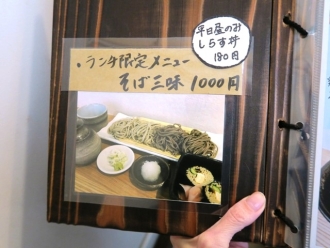 ・ランチ限定メニュー
そば三昧 1000円
平日昼のみ
しらす丼
180円